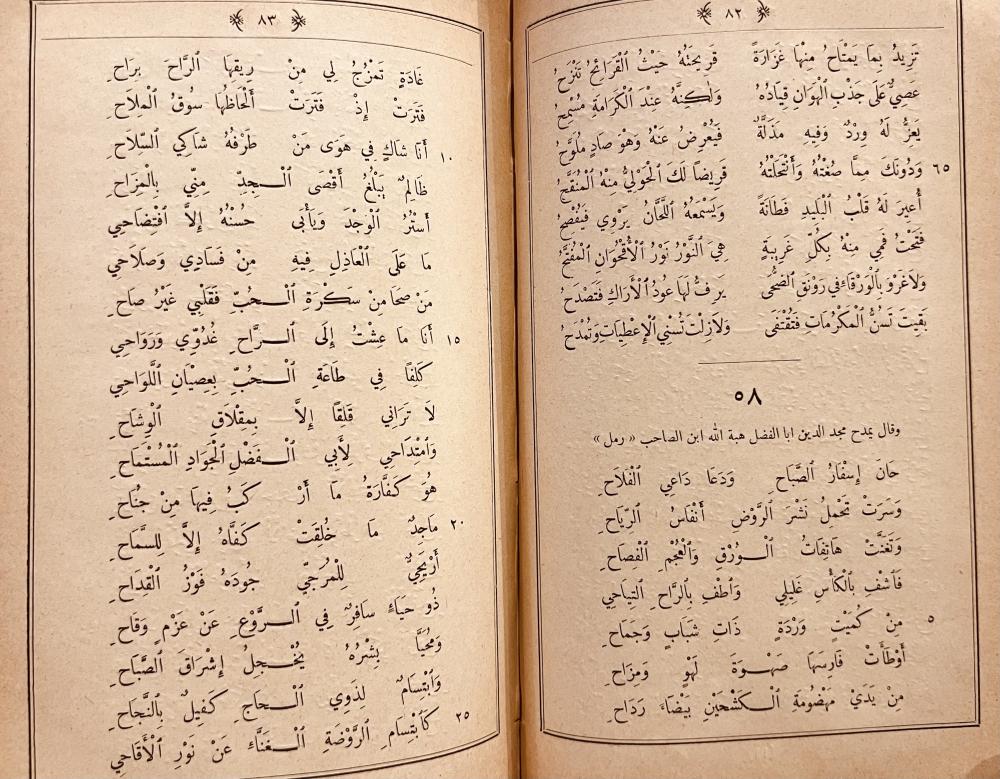 ٨٢
تَزِيدُ بِمَا يَمْتَاحُ مِنْهَا غَزَارَةً قَرِيحَتُهُ حَيْثُ الْقَرَائِحُ تُنْزَحُ
عَصِيٌّ عَلَى جَذْبِ الْهَوَانِ قِيَادُهُ وَلٰكِنَّهُ عِنْدَ الْكَرَامَةِ مُسْمِحُ
يَعِزُّ لَهُ وِرْدٌ وَفِيهِ مَذَلَّةٌ فَيُعْرِضُ عَنْهُ وَهْوَ صَادٍ مُلَوَّحُ
٦٥ وَدُونَكَ مِمَّا صُغْتُهُ وَٱنْتَحَلْتُهُ قَرِيضًا لَكَ الْحَوْلِيُّ مِنْهُ الْمُنَقَّحُ
أُعِيرَ لَهُ قَلْبُ الْبَلِيدِ فَطَانَةً وَيَسْمَعُهُ اللَّحَّانُ يَرْوِي فَيُفْصِحُ
فَتَحْتُ فَمِي مِنْهُ بِكُلِّ غَرِيبَةٍ هِيَ النَّوْرُ نَوْرُ الْأُقْحُوَانِ الْمُفَتَّحُ
وَلَا غَرْوَ بِالْوَرْقَاءِ فِي رَوْنَقِ الضُّحَى يَرِفُّ لَهَا عُودُ الْأَرَاكِ فَتَصْدَحُ
بَقِيتَ تَسُنُّ الْمَكْرُمَاتِ فَتُقْتَفَى وَلَا زِلْتَ تُسْنِي الْإِعْطِيَاتِ وَتُمْدَحُ
٥٨
وقال يمدح مجد الدين ابا الفضل هبة الله ابن الصاحب « رمل »
حَانَ إِسْفَارُ الصَّبَاحِ وَدَعَا دَاعِي الْفَلَاحِ
وَسَرَتْ تَحْمِلُ نَشْرَ الرَّوْضِ أَنْفَاسُ الرِّيَاحِ
وَتَغَنَّتْ هَاتِفَاتُ الْوُرْقِ وَالْعُجْمِ الْفِصَاحِ
فَٱشْفِ بِٱلْكَأْسِ غَلِيلِي وَٱطْفِ بِالرَّاحِ الْتِيَاحِي
٥ مِنْ كُمَيْتٍ وَرْدَةٍ ذَاتِ شَبَابٍ وَجِمَاحِ
أَوْطَأَتْ فَارِسَهَا صَهْوَةَ لَهْوٍ وَمِزَاحِ
مِنْ يَدَيْ مَهْضُومَةِ الْكَشْحَيْنِ بَيْضَاءَ رَدَاحِ
٨٣
غَادَةٍ تَمْزُجُ لِي مِنْ رِيقِهَا الرَّاحَ بِرَاحِ
فَتَرَتْ إِذْ فَتَرَتْ أَلْحَاظُهَا سُوقُ الْمِلَاحِ
١٠ أَنَا شَاكٍ فِي هَوَى مَنْ طَرْفُهُ شَاكِي السِّلَاحِ
ظَالِمٌ يَبْلُغُ أَقْصَى الْجِدِّ مِنِّي بِالْمِزَاحِ
أَسْتُرُ الْوَجْدَ وَيَأْبَى حُسْنُهُ إِلَّا ٱفْتِضَاحِي
مَا عَلَى الْعَاذِلِ فِيهِ مِنْ فَسَادِي وَصَلَاحِي
مَنْ صَحَا مِنْ سَكْرَةِ الْحُبِّ فَقَلْبِي غَيْرُ صَاحِ
١٥ أَنَا مَا عِشْتُ إِلَى الرَّاحِ غُدُوِّي وَرَوَاحِي
كَلِفًا فِي طَاعَةِ الْحُبِّ بِعِصْيَانِ اللَّوَاحِي
لَا تَرَانِي قَلِقًا إِلَّا بِمِقْلَاقِ الْوِشَاحِ
وَٱمْتِدَاحِي لِأَبِي الْفَضْلِ الْجَوَادِ الْمُسْتَمَاحِ
هُوَ كَفَّارَةُ مَا أَرْ كَبُ فِيهَا مِنْ جُنَاحِ
٢٠ مَاجِدٌ مَا خُلِقَتْ كَفَّاهُ إِلَّا لِلسَّمَاحِ
أَرْيَحِيٌّ لِلْمُرَجِّي جُودَهُ فَوْزُ الْقِدَاحِ
ذُو حَيَاءٍ سَافِرٌ فِي الرَّوْعِ عَنْ عَزْمٍ وَقَاحِ
وَمُحَيَّا بِشْرُهُ يُخْجِلُ إِشْرَاقَ الصَّبَاحِ
وَٱبْتِسَامٌ لِذَوِي الْحَاجِ كَفِيلٌ بِالنَّجَاحِ
٢٥ كَٱبْتِسَامِ الرَّوْضَةِ الْغَنَّاءِ عَنْ نَوْرِ الْأَقَاحِي